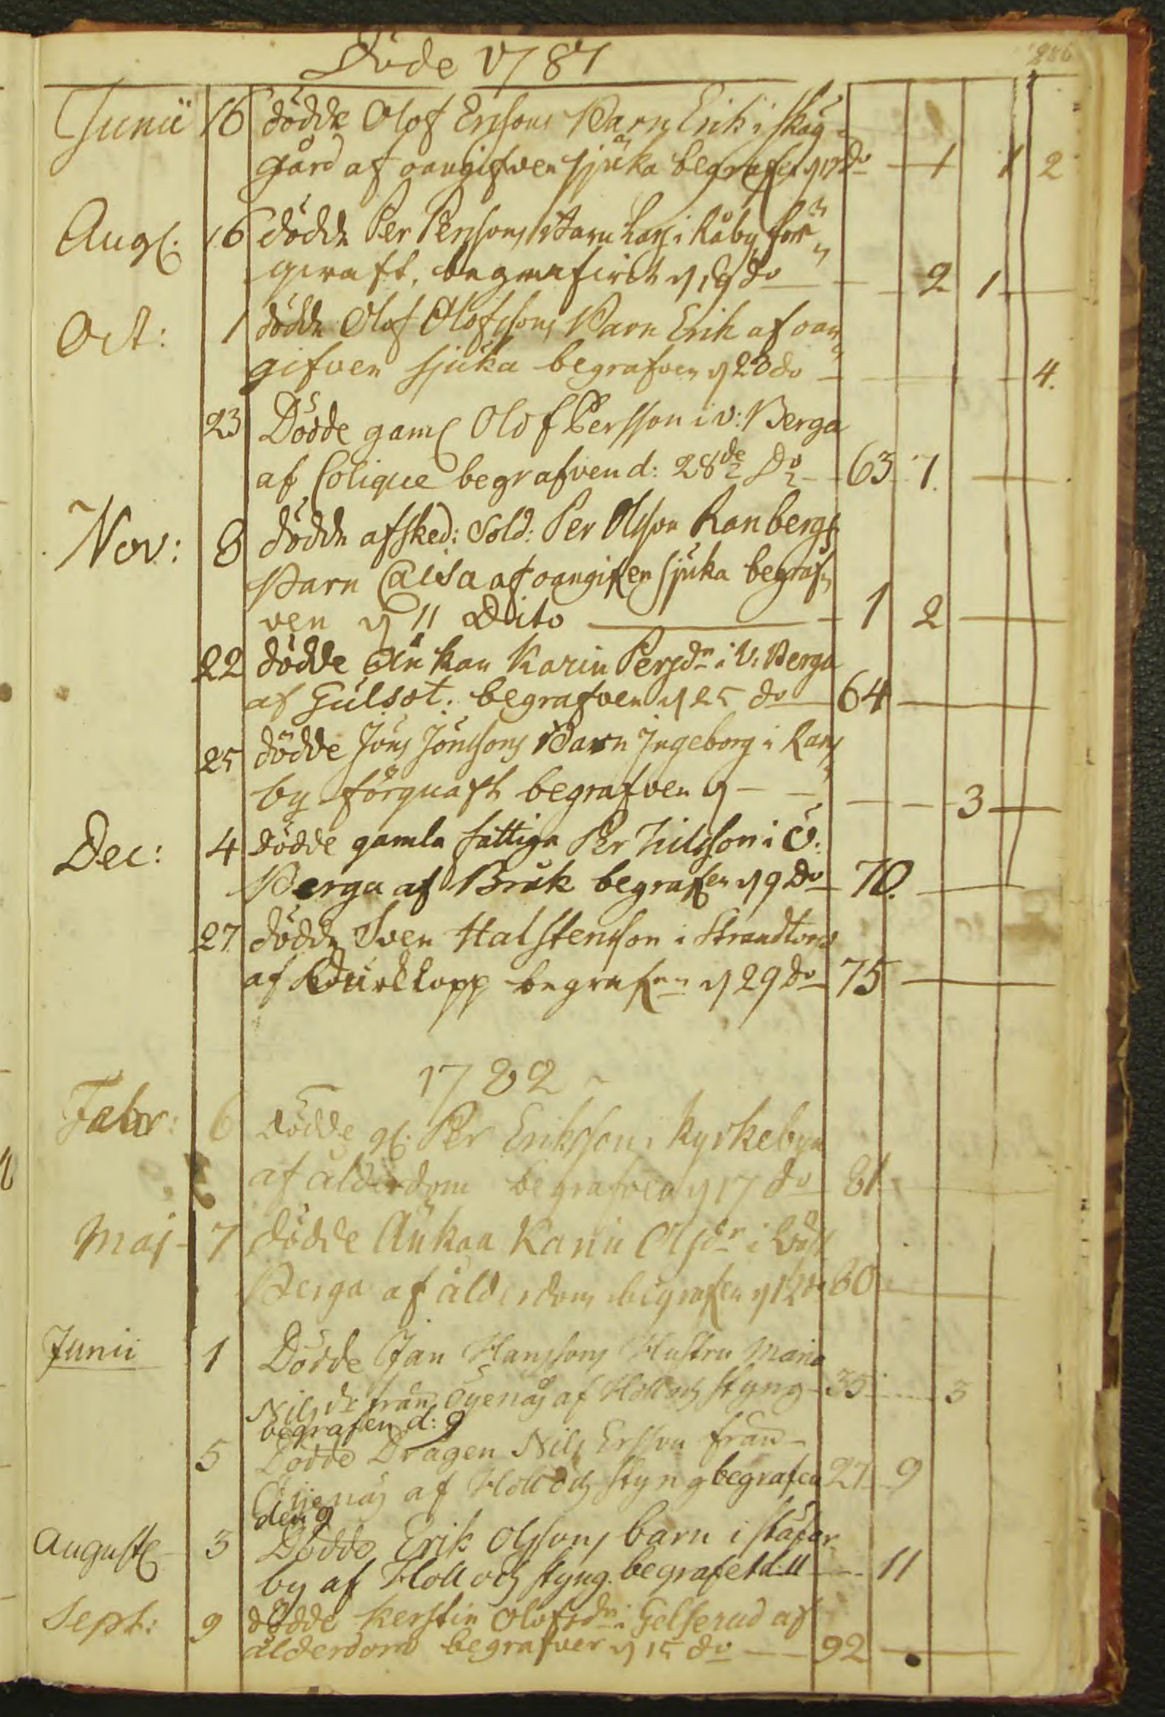 Döde 1787
286
Junii 16 dödde Olof Ersons Barn Erik i skog-
gård af oangifven sjuka begrafen d 17 do — 1 1 2
Aug. 16 dödde Per Perssons Barn Lars i Råby för-
begrafvet d 19 do — 2 1 —
Oct: 1 dödde Olof Olofssons Barn Erik af oan-
gifven sjuka begrafven d 23 do — 4.
23 Dödde gaml Olof Persson i v: Berga
af Colique begrafven d: 28de Do — 63 7. —
Nov: 8 dödde afsked: Sold: Per Olsson Ranbergs
Barn Caisa af oangifven sjuka begraf-
ven d 11 Dito — 1 2 —
22 dödde Änkan Karin Persdr i V: Berga
af Gulsot: begrafven d 25 do 64 —
25 dödde Jöns Jönssons Barn Ingeborg i
by förquaft begrafven d — — 3 —
Dec: 4 dödde gamla fattiga Per Nilsson i V:
Berga af Bråk begrafen d 9 do 70. —
27 dödde Sven Halstensson i Strandtorp
af begrafen d 29 do 75 —
1782
Febr: 6 dödde gl: Per Eriksson i Kyrkebyn
af ålderdom begrafven d 17 do 81
Maj 7 dödde Änkan Karin Olsdr i Wäst
Berga af ålderdom begrafen d 12 do 60
Junii 1 Dödde Jan Hanssons Hustru Maria
Nilsdr från Öyenäs af Håll och styng 35 — 3
begrafen d: 9
5 Dödde Dragen Nils Ersson från
Öyenäs af Håll och styng begrafen 27 9
den 9
Augusti 3 Dödde Erik Olssons barn i
by af Håll och styng. begrafet d. 11 — 11
Sept: 9 dödde Kerstin Olofsdr i Gelserud af
ålderdom begrafven d 15 do — 92 —